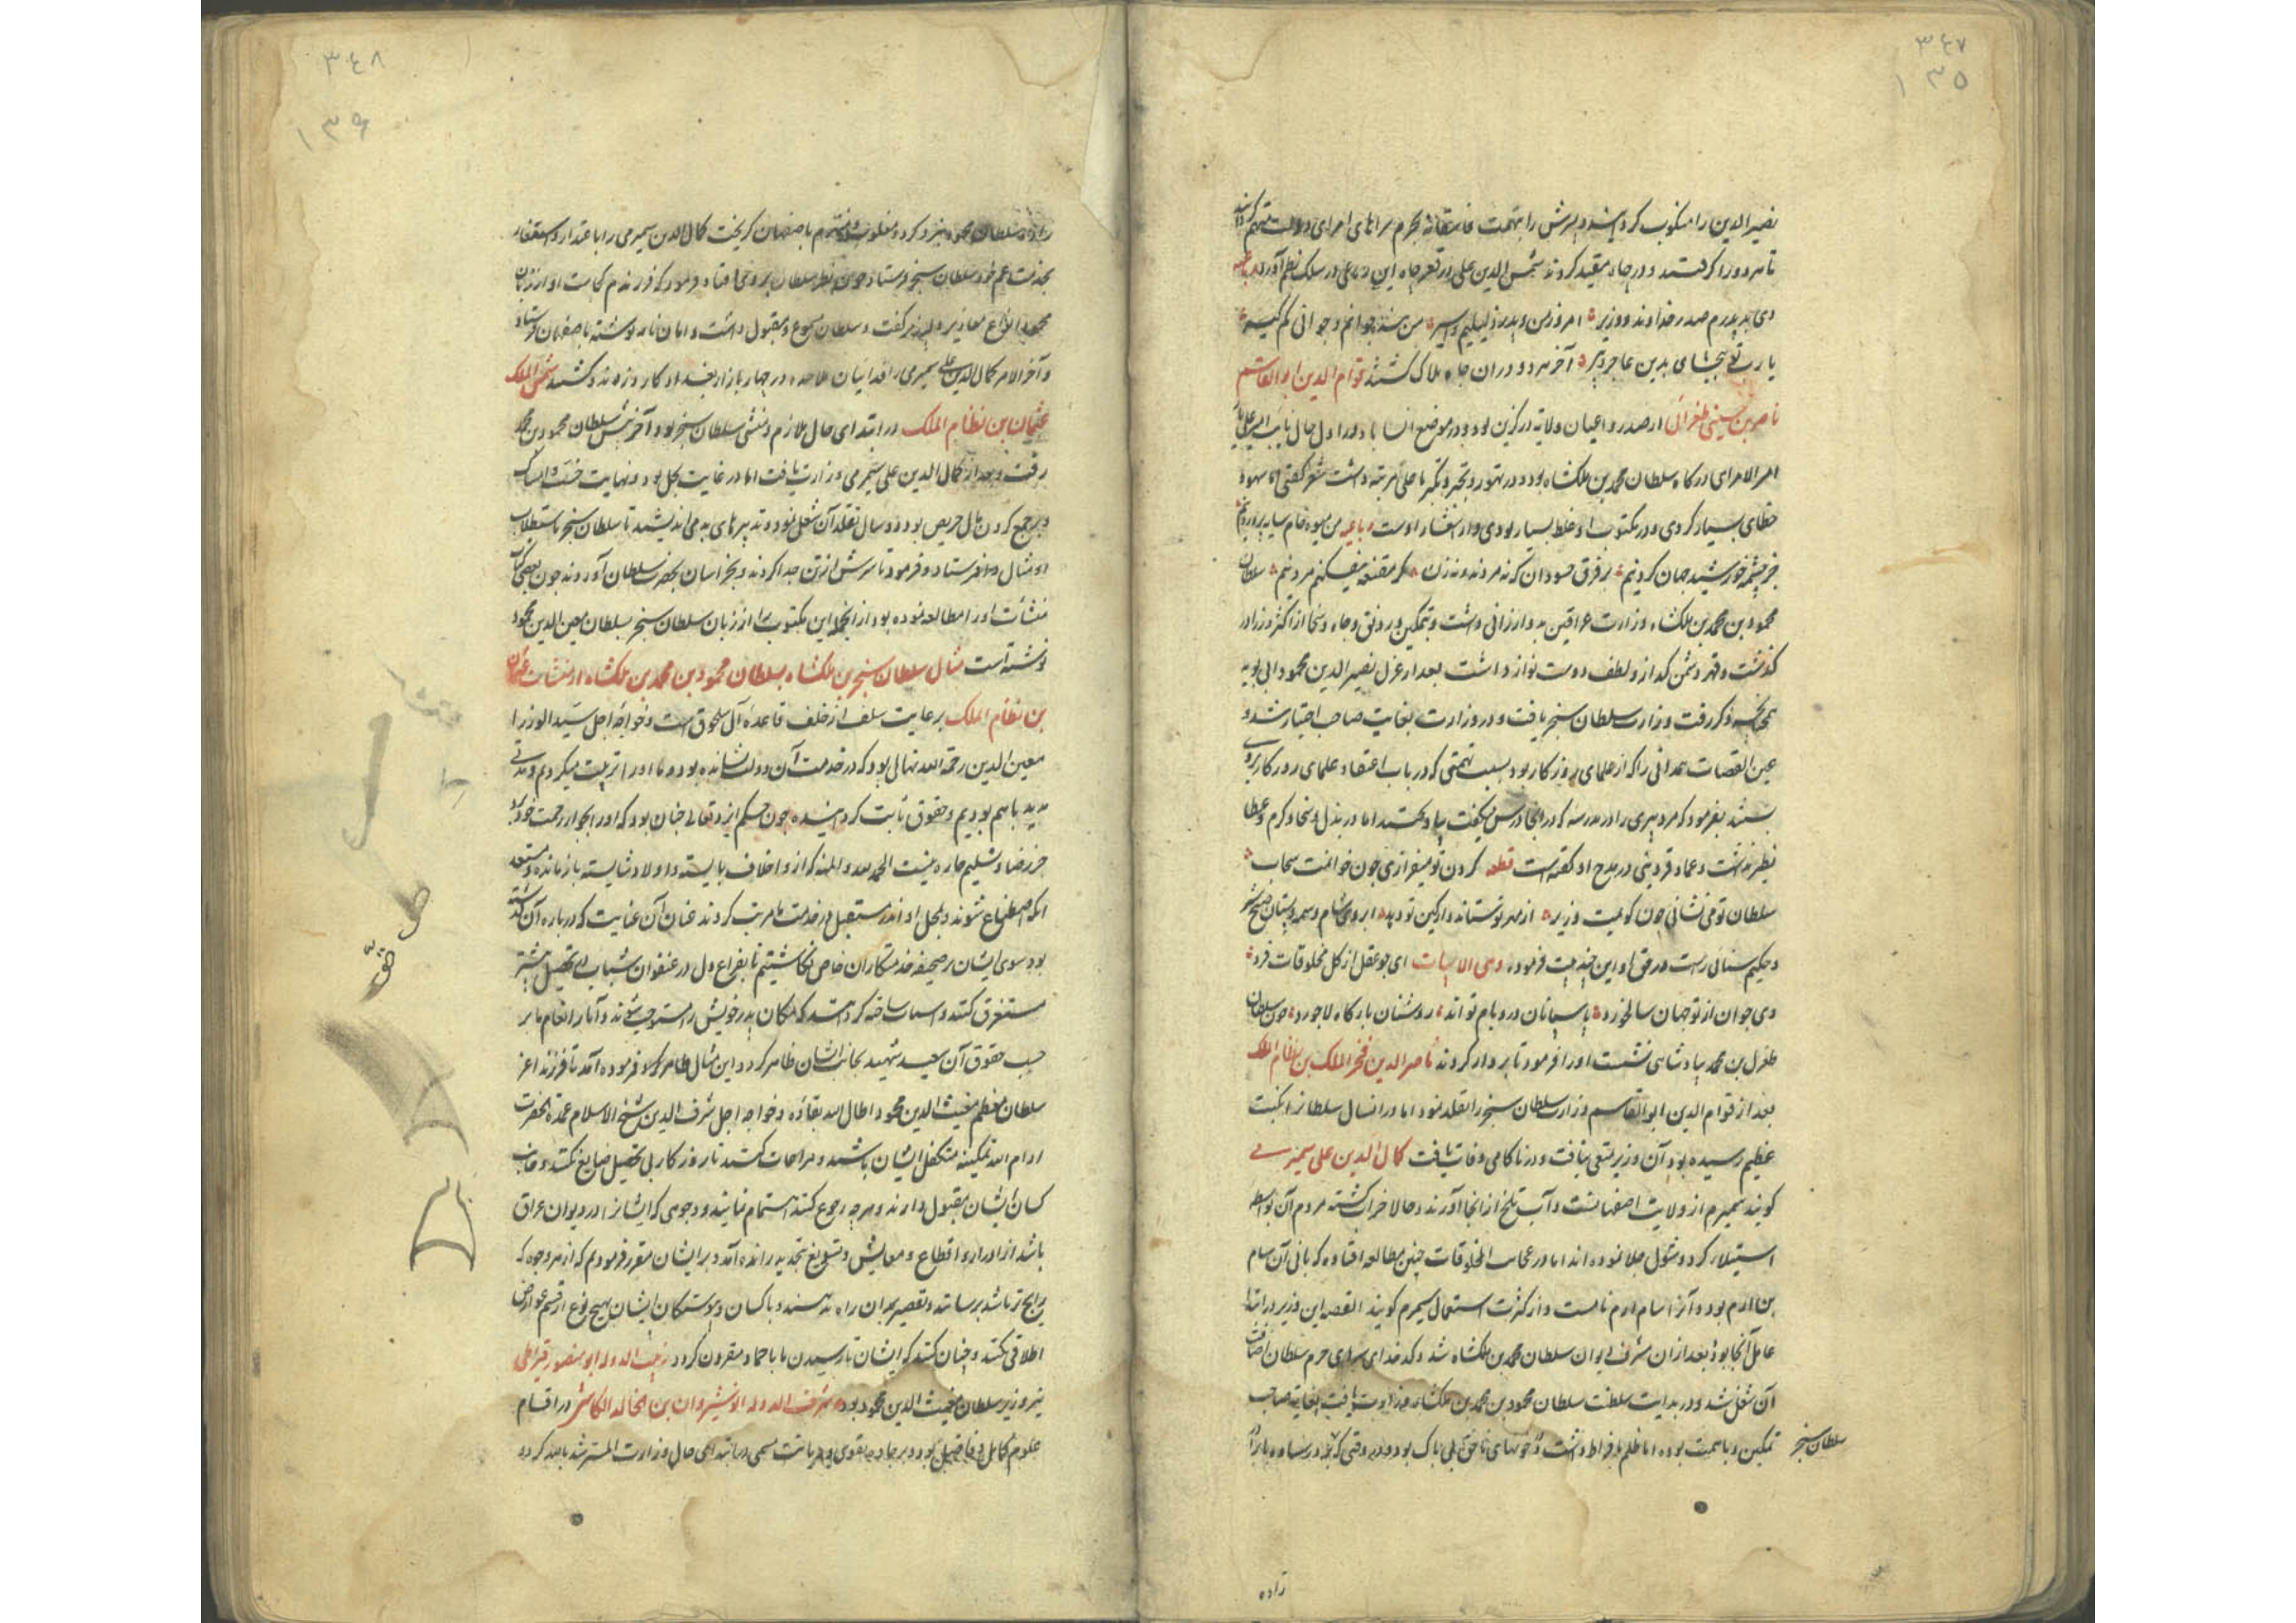 ٣٤٧
١٣٥
نصیر الدین را منکوب کردانید و پسرش را بتهمت
تا هر دو را گرفتند و در چاه مقید کردند شمس الدین علی در قعر چاه این رباعی در سلک نظم آورد رباعیه
دی بد پدرم صدر خداوند و وزیر امروز من و پدر ذلیلیم و اسیر من بنده جوانم و جوانی کم گیر
یا رب تو ببخشای بدین عاجز پیر آخر هر دو در آن چاه هلاک گشتند قوام الدین ابو القاسم
ناصر بن حسینی طغرائی از صدور و اعیان ولایة درگزین بود و در موضع انساباد و در اول حال نایب امیر علی بار
امیر الامرای درگاه سلطان محمد بن ملکشاه بود و در تهور و تجبر و تکبر تا حلی مرتبه داشت شعر گفتی اما سهو و
خطای بسیار کردی و در مکتوب او غلط بسیار بودی و از اشعار اوست رباعیه من میوه خام سایه پرورد نیم
جز چشمه خورشید جهان گرد نیم بر فرق حسودان که نه مردند و نه زن گر مقنعه نیفکنم مرد نیم سلطان
محمود بن محمد بن ملکشاه وزارت عراقین بدو ارزانی داشت و بتمکین و رونق و جاه و سخا از اکثر وزرا در
گذشت و قهر دشمن گداز و لطف دوست نواز داشت بعد از عزل نصیر الدین محمود ابی توبه
همچنانکه ذکر رفت وزارت سلطان سنجر یافت و در وزارت بغایت صاحب اختیار شد و
عین القضات همدانی را که از علمای روزگار بود بسبب تهمتی که در باب اعتقاد علمای روزگار برو می
بستند بفرمود که مرد پیری را در مدرسه که در آنجا درس میگفت بیاویختند اما در بذل و سخا و کرم و عطا
نظیر نداشت و عماد قزوینی در مدح او گفته است قطعه گردون تو میفرازی چون خوانمت سحاب
سلطان تو می نشانی چون گویمت وزیر از مهر تو ستاند و از کین تو دهد
و حکیم سنائی راست در حق او این چند بیت فرموده و هی الابیات ای چو عقل از کل مخلوقات فرد
وی جوان از تو جهان سالخورد پاسبانان در و بام تو اند روشنان بارگاه لاجورد چون سلطان
طغرل بن محمد بپادشاهی نشست او را فرمود تا بر دار کردند ناصر الدین فخر الملک بن نظام الملک
بعد از قوام الدین ابو القاسم وزارت سلطان سنجر را تقلد نمود اما در آن سال سلطان را نکبت
عظیم رسیده بود آن وزیر تمتعی نیافت و در ناکامی وفات یافت کمال الدین علی سمیرمی
گویند سمیرم از ولایت اصفهانست و آب تلخ از آنجا آورند و حالا خراب گشته مردم آن بواسطه
استیلاء کرد و شول جلا نموده اند اما در عجایب المخلوقات چنین مطالعه افتاده که بانی آن سام
بن ارم بود و آنرا سام ارم نام است و از کثرت استعمال سمیرم گویند القصه این وزیر در ابتدا
عامل آنجا بود و بعد از آن مشرف دیوان سلطان محمد بن ملکشاه شد و کدخدای سرای حرم سلطان اضافت
آن شغل شد و در بدایت سلطنت سلطان محمود بن محمد بن ملکشاه وزارت یافت بغایة صاحب
تمکین و با همت بوده اما ظلم بافراط داشت و در خونهای ناحق بی باک بود و در وقتی که
سلطان سنجر
زاده
٣٤٨
١٣٦
زاده سلطان محمود نبرد کرد و مغلوب و منهزم باصفهان گریخت کمال الدین سمیرمی را با عتذار و استغفار
بخدمت عم خود سلطان سنجر فرستاد چون نظر سلطان بر وی افتاد فرمود که فرزندم کجاست او از زبان
محمود انواع معاذیر دلپذیر گفت و سلطان مسموع و مقبول داشت و امان نامه نوشته باصفهان فرستاد
و آخر الامر کمال الدین علی سمیرمی را فدائیان ملاحده در چهار بازار بغداد کارد زدند و کشتند شمس الملک
عثمان بن نظام الملک در ابتدای حال ملازم و منشی سلطان سنجر بود و آخر پیش سلطان محمود بن محمد
رفت و بعد از کمال الدین علی سمیرمی وزارت یافت اما در غایت بخل بود و نهایت خست و امساک
و بر جمع کردن مال حریص بود و دو سال تقلد آن شغل نمود و تدبیرهای بد می اندیشید تا سلطان سنجر باستطلاب
او مثال داد و فرستاد و فرمود تا سرش از تن جدا کردند و بخراسان بحضرت سلطان آوردند چون بعضی کتاب
منشآت او را مطالعه نموده بود از آنجمله این مکتوب را از زبان سلطان سنجر بسلطان معین الدین محمود
نوشته است مثال سلطان سنجر بن ملکشاه بسلطان محمود بن محمد بن ملکشاه از منشآت عثمان
بن نظام الملک بر عایت سلف از خلف قاعدهٔ آل سلجوق است و خواجه اجل سید الوزرا
معین الدین رحمة الله نهالی بود که در خدمت آن دولت نشانده بود و ما او را تربیت میکردیم و مدتی
مدید با هم بودیم و حقوق ثابت گردانیده چون حکم ایزد تعالی چنان بود که او را بجوار رحمت خود برد
جز رضا و تسلیم چاره نیست الحمد لله و المنه که از و اخلاف بایسته و اولاد شایسته باز مانده و مستعد
بود سوی ایشان بر صحیفه خدمتکاران خاص نگاشتیم تا بفراغ دل در عنفوان شباب بر تحصیل بیشتر
مستغرق کنند و اسباب ساخته گردانند که مکان پدر خویش را مستوجب شوند و آثار انعام ما بر
حسب حقوق آن سعید شهید بجانب ایشان ظاهر گردد و این مثال فرموده آمد تا فرزند اعز
سلطان معظم مغیث الدین محمود اطال الله بقاءه و خواجه اجل شرف الدین شیخ الاسلام عمدة الحضرت
ادام الله تمکینه متکفل ایشان باشند و مراعات کنند تا روزگار بی تحصیل ضایع نکنند و جانب
کسان ایشان مقبول دارند و هر چه رجوع کنند اهتمام نمایند و وجوهی که ایشان را در دیوان عراق
باشد از ادرار و اقطاع و معایش و تسویغ بتجدید رانده آمد و بر ایشان مقرر فرمودیم که از هر وجوه که
رایج تر باشد برسانند و تقصیر بدان راه ندهند و با کسان و پیوستگان ایشان بهیچ نوع از قسم عوارض
اطلاقی نکنند و چنان کنند که ایشان تا رسیدن ما با حماد مقرون گردد زین الدوله ابو منصور قیراطی
نیز وزیر سلطان مغیث الدین محمود بود شرف الدوله انوشیروان بن خالد الکاشی در اقسام
علوم کامل و فاضل بود و بر جاده تقوی و دیانت در ابتدای حال وزارت المسترشد بالله کرده